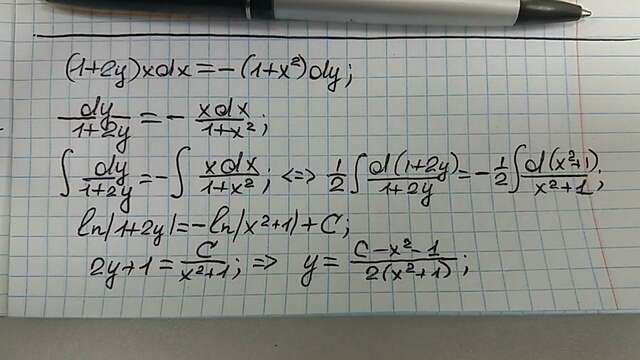 (1+2y)xdx=-(1+x²)dy;
dy/(1+2y)=-xdx/(1+x²);
∫dy/(1+2y)=-∫xdx/(1+x²); <=> 1/2∫d(1+2y)/(1+2y)=-1/2∫d(x²+1)/(x²+1);
ln|1+2y|=-ln|x²+1|+C;
2y+1=C/(x²+1); => y=(C-x²-1)/(2(x²+1));